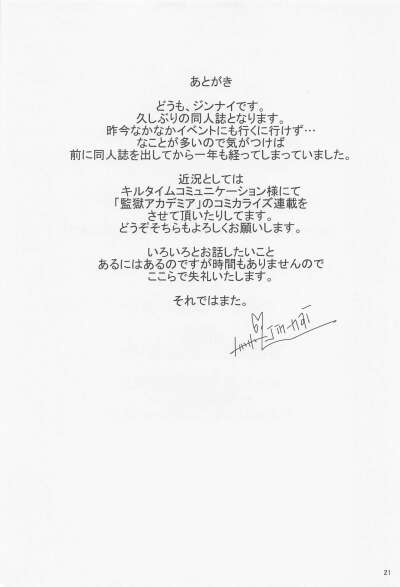 あとがき
どうも、ジンナイです。
久しぶりの同人誌となります。
昨今なかなかイベントにも行くに行けず…
なことが多いので気がつけば
前に同人誌を出してから一年も経ってしまっていました。
近況としては
キルタイムコミュニケーション様にて
「監獄アカデミア」のコミカライズ連載を
させて頂いたりしてます。
どうぞそちらもよろしくお願いします。
いろいろとお話したいこと
あるにはあるのですが時間もありませんので
ここらで失礼いたします。
それではまた。
Jin-nai
21